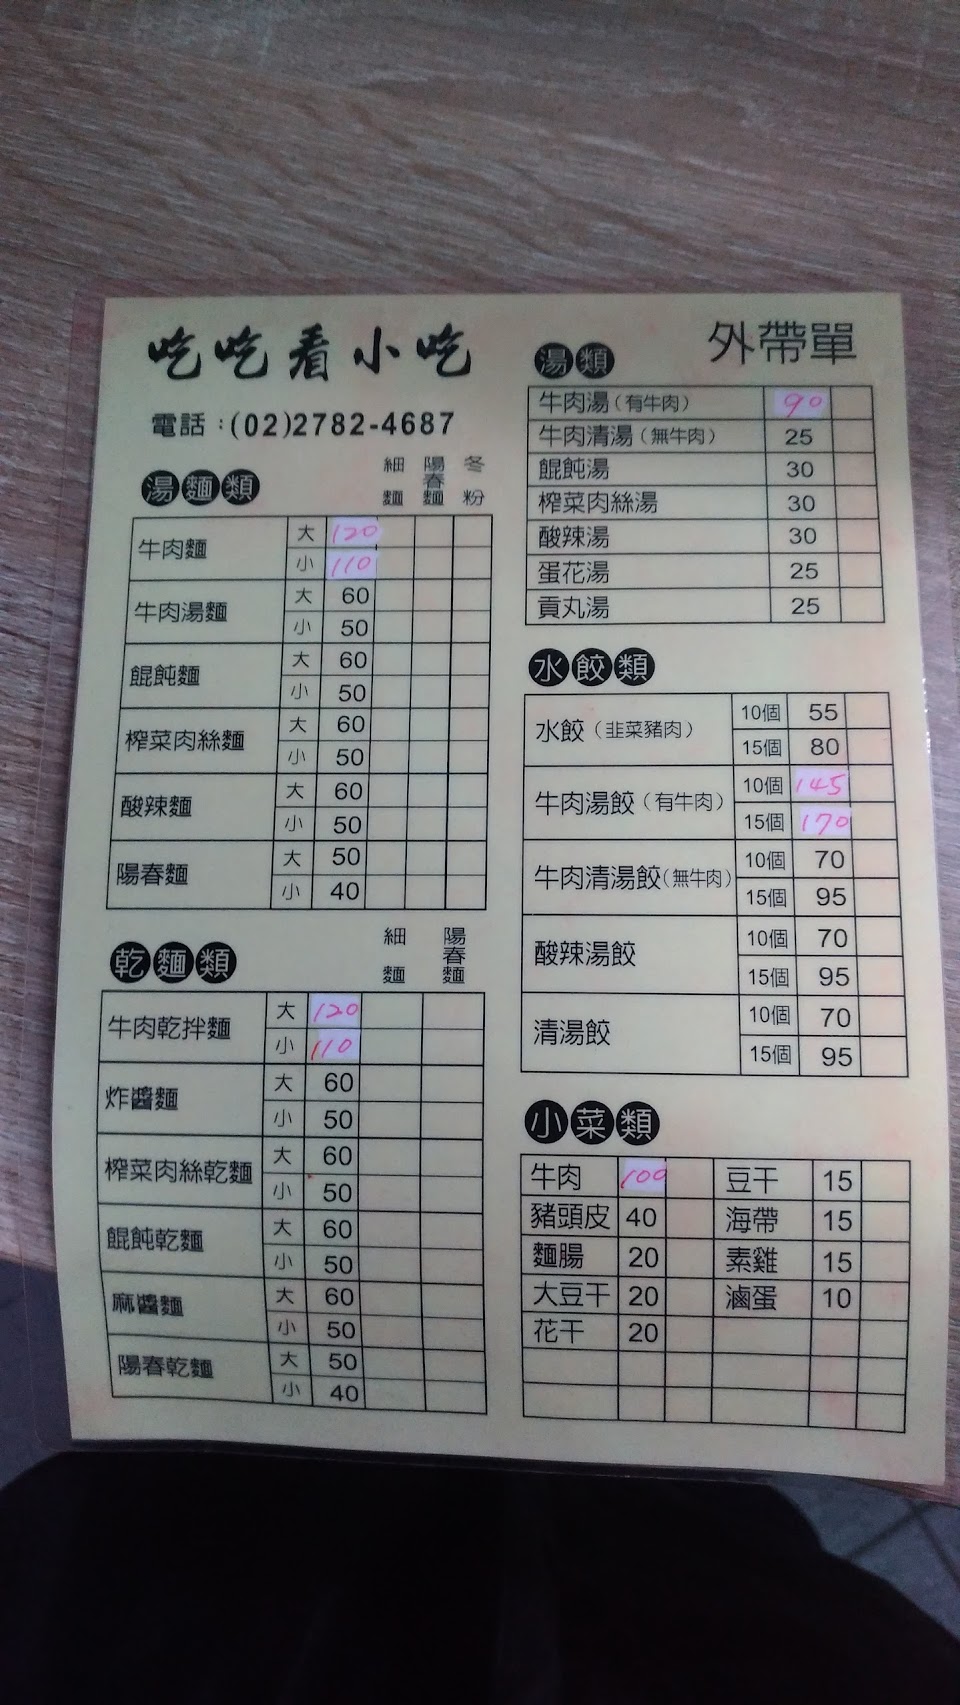 吃吃看小吃
電話：(02)2782-4687
湯麵類
細麵 陽春麵 冬粉
牛肉麵 大 120
小 110
牛肉湯麵 大 60
小 50
餛飩麵 大 60
小 50
榨菜肉絲麵 大 60
小 50
酸辣麵 大 60
小 50
陽春麵 大 50
小 40
乾麵類
細麵 陽春麵
牛肉乾拌麵 大 120
小 110
炸醬麵 大 60
小 50
榨菜肉絲乾麵 大 60
小 50
餛飩乾麵 大 60
小 50
麻醬麵 大 60
小 50
陽春乾麵 大 50
小 40
外帶單
湯類
牛肉湯（有牛肉） 90
牛肉清湯（無牛肉） 25
餛飩湯 30
榨菜肉絲湯 30
酸辣湯 30
蛋花湯 25
貢丸湯 25
水餃類
水餃（韭菜豬肉） 10個 55
15個 80
牛肉湯餃（有牛肉） 10個 145
15個 170
牛肉清湯餃（無牛肉） 10個 70
15個 95
酸辣湯餃 10個 70
15個 95
清湯餃 10個 70
15個 95
小菜類
牛肉 100 豆干 15
豬頭皮 40 海帶 15
麵腸 20 素雞 15
大豆干 20 滷蛋 10
花干 20